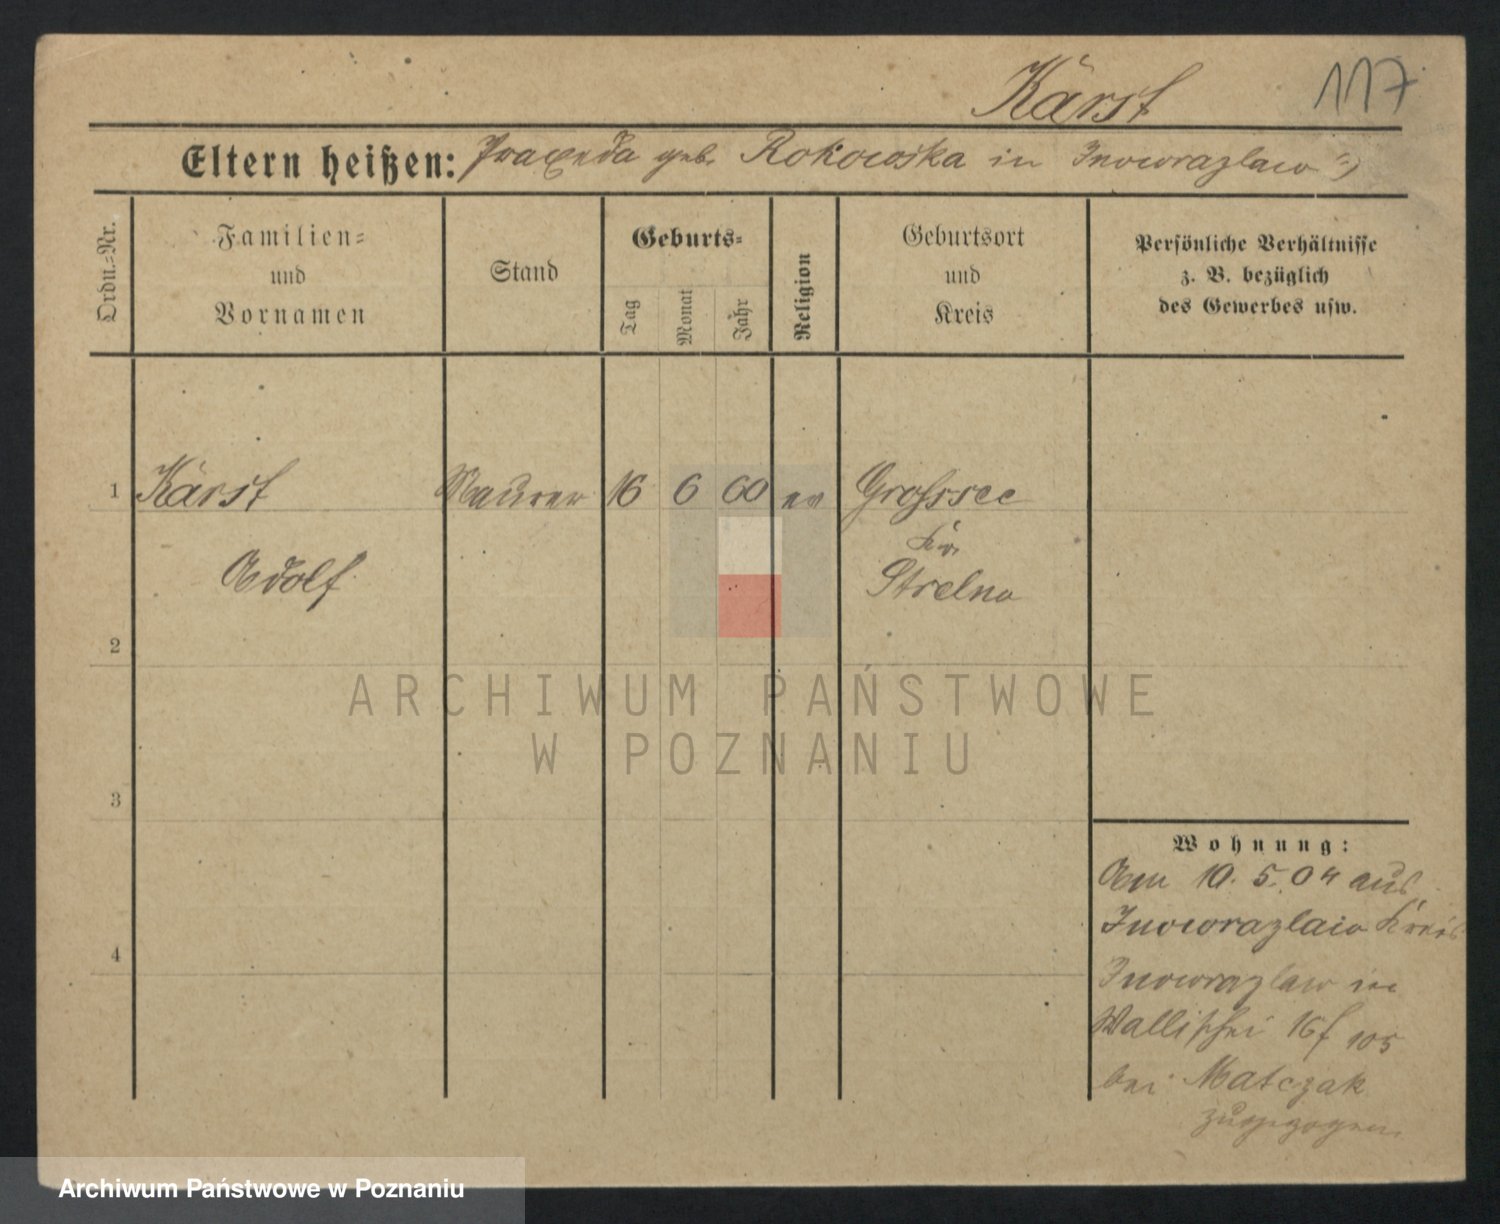 Kärst 117
Eltern heißen: Praxeda geb. Rokowska in Inowrazlaw
Ordn.-Nr.
Familien-
und
Vornamen
Stand
Geburts-
Tag
Monat
Jahr
Religion
Geburtsort
und
Kreis
Persönliche Verhältnisse
z. B. bezüglich
des Gewerbes usw.
1 Kärst Maurer 16 6 60 ev Grosssee
Kr.
Adolf Strelno
2
ARCHIWUM PAŃSTWOWE
W POZNANIU
3
Wohnung:
Am 10. 5. 04 aus
Inowrazlaw Kreis
4
Inowrazlaw in
Wallischei 16 f 105
bei Matczak
zugezogen.
Archiwum Państwowe w Poznaniu